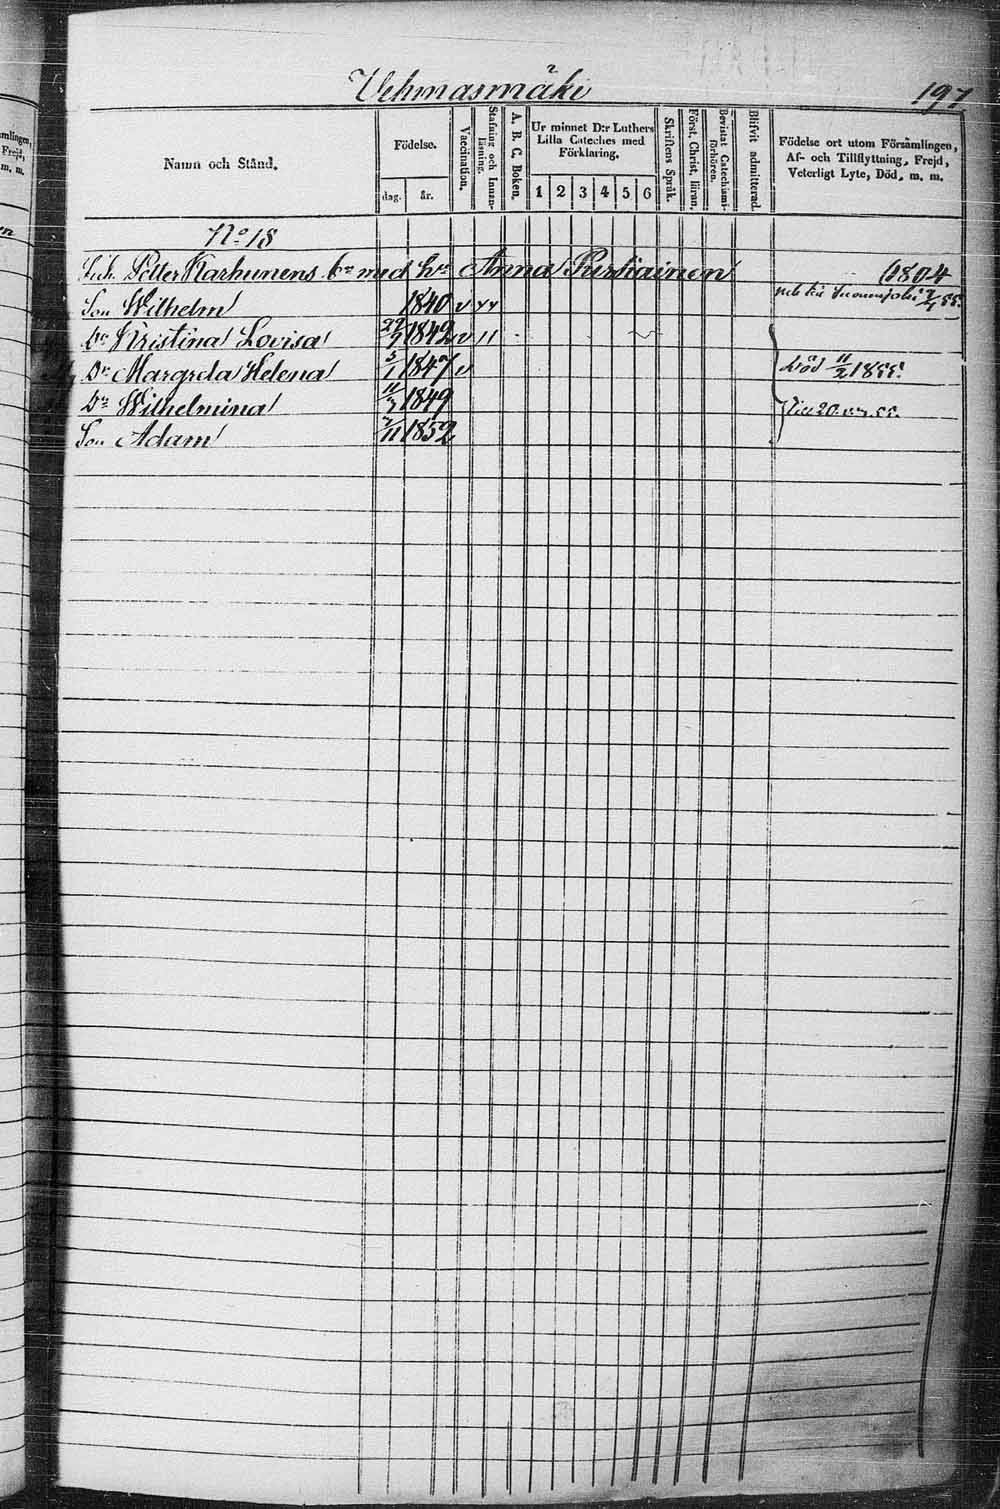 Vehmasmäki 197
Namn och Stånd.
Födelse.
dag. år.
Vaccination.
Stafning och Innanläsning.
A. B. C. Boken.
Ur minnet D:r Luthers
Lilla Cateches med
Förklaring.
1 2 3 4 5 6
Skriftens Språk.
Först. Christ. läran.
Bevistat Catechismiförhören.
Blifvit admitterad.
Födelse ort utom Församlingen,
Af- och Tillflyttning, Frejd,
Veterligt Lyte, Död, m. m.
No 18
Petter Karhunens med Anna Purtiainen 1804
Son Wilhelm 1840 v
Kristina Lovisa 1842 v
Dr Margreta Helena 5/1 1847 v Död 11/2 1855.
Dr Wilhelmina 11/7 1849 Till 20
Son Adam 7/11 1852